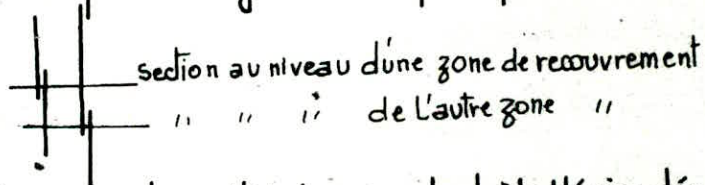 section au niveau d'une zone de recouvrement
" " " de L'autre zone "